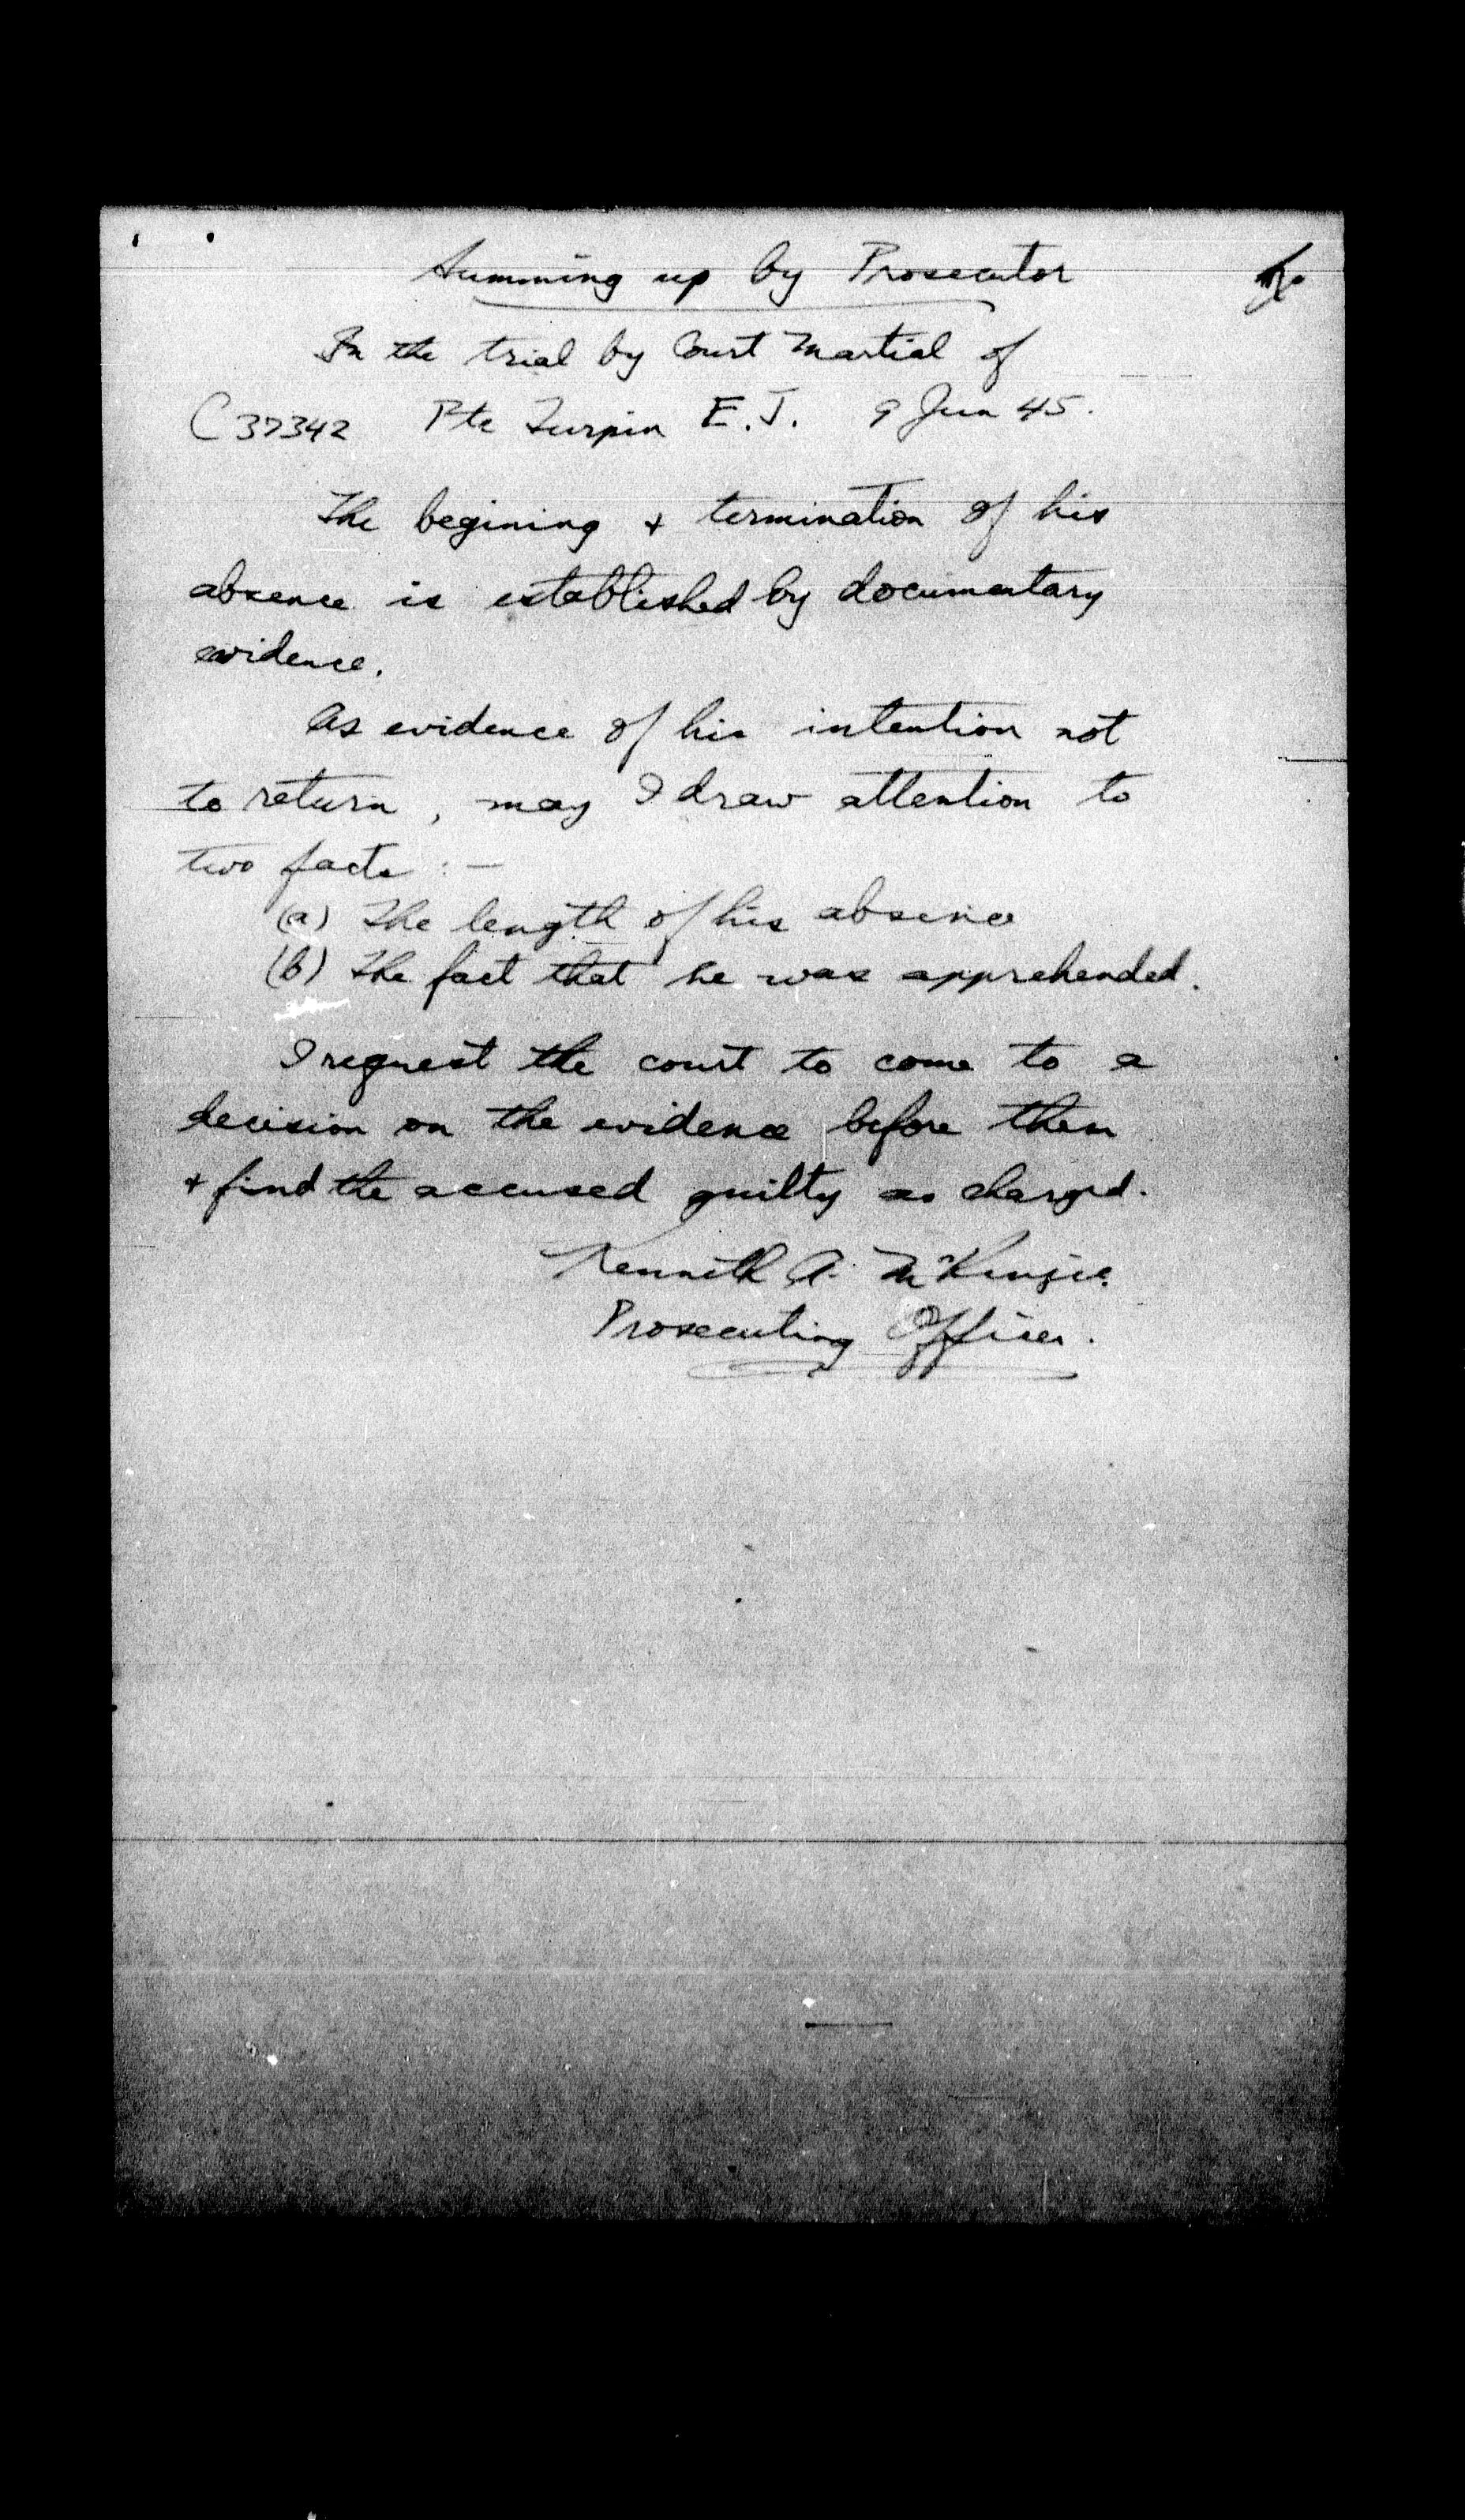 Summing up by Prosecutor
In the trial by Court Martial of
C 37342 Pte Turpin E.J. 9 Jun 45.
The begining + termination of his
absence is established by documentary
evidence.
As evidence of his intention not
to return, may I draw attention to
two facts :-
(a) The length of his absence
(b) The fact that he was apprehended.
I request the court to come to a
decision on the evidence before them
+ find the accused guilty as charged.
Kenneth A. McKenzie.
Prosecuting Officer.